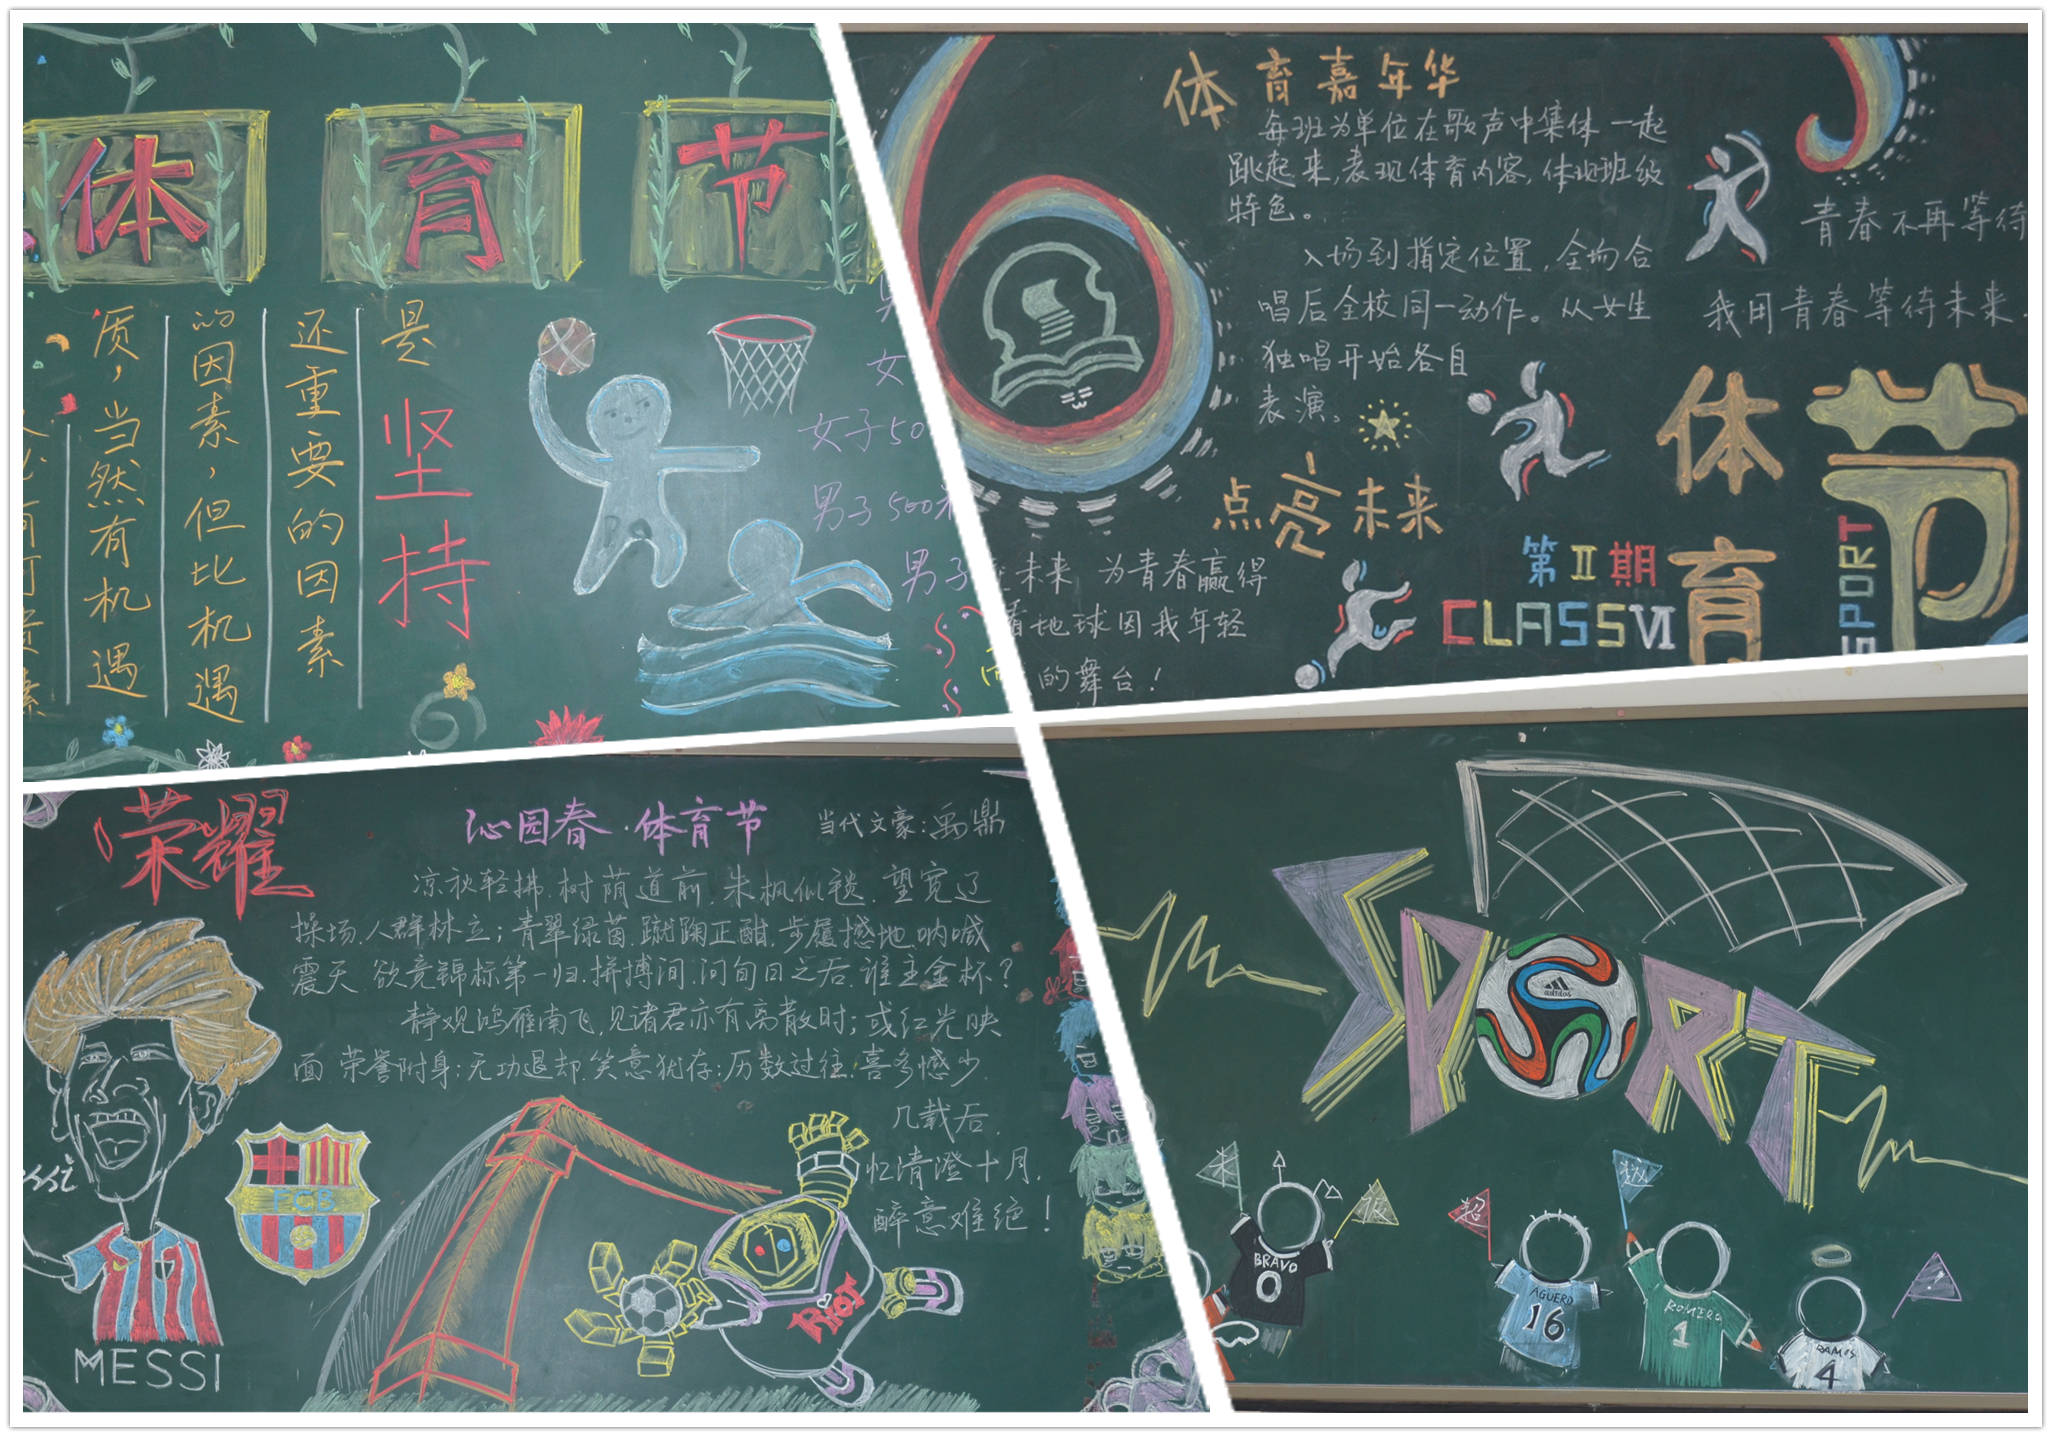 体育节
是
坚持
还重要的因素
的因素，但比机遇
质，当然有机遇
女
女子50
男子500米
男子
体育嘉年华
每班为单位在歌声中集体一起
跳起来,表现体育内容,体现班级
特色。
入场到指定位置,全场合
唱后全校同一动作。从女生
独唱开始各自
表演。
点亮未来
未来 为青春赢得
着地球因我年轻
的舞台!
青春不再等待
我用青春等待未来.
体育节
SPORT
第II期
CLASSVI
荣耀
沁园春·体育节 当代文豪:禹鼎
凉秋轻拂,树荫道前,朱枫似毯,望宽辽
操场,人群林立;青翠绿茵,蹴鞠正酣,步履撼地,呐喊
震天,欲竞锦标第一归,拼搏间,问旬日之后,谁主金杯?
静观鸿雁南飞,见诸君亦有离散时;或红光映
面,荣誉附身;无功退却,笑意犹存;历数过往,喜多憾少.
几载后,
忆清澄十月,
醉意难绝!
ssi
FCB
MESSI
RIOT
SPORT
adidas
来
板
超
级
BRAVO
0
AGÜERO
16
ROMERO
1
RAMOS
4